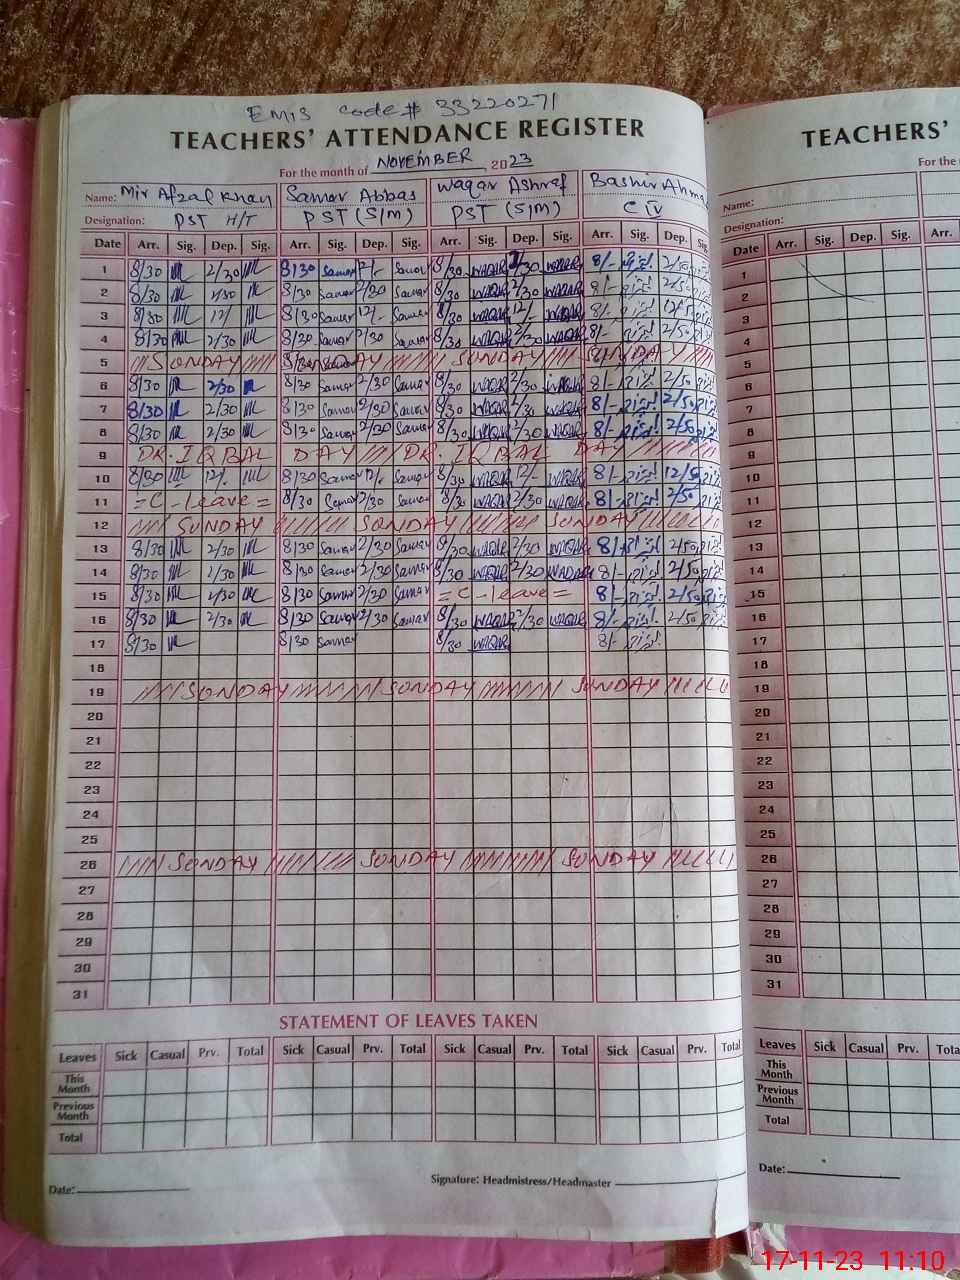 EMIS code# 33220271
TEACHERS' ATTENDANCE REGISTER
For the month of NOVEMBER, 2023
Name: Mir Afzal Khan Samar Abbas Waqar Ashraf Bashir Ahma
Designation: PST H/T PST (S/M) PST (S/M) C IV
Date Arr. Sig. Dep. Sig. Arr. Sig. Dep. Sig. Arr. Sig. Dep. Sig. Arr. Sig. Dep. Sig.
1 8/30 2/30 8/30 Samar 2/- Samar 8/30 WAQAR 2/30 WAQAR 8/- 2/50
2 8/30 2/30 8/30 Samar 2/30 Samar 8/30 WAQAR 2/30 WAQAR 8/- 2/50
3 8/30 12/ 8/30 Samar 12/- Samar 8/30 WAQAR 12/- WAQAR 8/- 12/50
4 8/30 2/30 8/30 Samar 2/30 Samar 8/30 WAQAR 2/30 WAQAR 8/- 2/50
5 SUNDAY SUNDAY SUNDAY
6 8/30 2/30 8/30 Samar 2/30 Samar 8/30 WAQAR 2/30 WAQAR 8/- 2/50
7 8/30 2/30 8/30 Samar 2/30 Samar 8/30 WAQAR 2/30 WAQAR 8/- 2/50
8 8/30 2/30 8/30 Samar 2/30 Samar 8/30 WAQAR 2/30 WAQAR 8/- 2/50
9 DR. IQBAL DAY DR. IQBAL DAY
10 8/30 12/. 8/30 Samar 12/. Samar 8/30 WAQAR 12/- WAQAR 8/- 12/50
11 = C - leave = 8/30 Samar 2/30 Samar 8/30 WAQAR 2/30 WAQAR 8/- 2/50
12 SUNDAY SUNDAY SUNDAY
13 8/30 2/30 8/30 Samar 2/30 Samar 8/30 WAQAR 2/30 WAQAR 8/- 2/50
14 8/30 2/30 8/30 Samar 2/30 Samar 8/30 WAQAR 2/30 WAQAR 8/- 2/50
15 8/30 2/30 8/30 Samar 2/30 Samar = C - leave = 8/- 2/50
16 8/30 2/30 8/30 Samar 2/30 Samar 8/30 WAQAR 2/30 WAQAR 8/- 2/50
17 8/30 8/30 Samar 8/30 WAQAR 8/-
18
19 SUNDAY SUNDAY SUNDAY
20
21
22
23
24
25
26 SUNDAY SUNDAY SUNDAY
27
28
29
30
31
STATEMENT OF LEAVES TAKEN
Leaves Sick Casual Prv. Total Sick Casual Prv. Total Sick Casual Prv. Total Sick Casual Prv. Total
This
Month
Previous
Month
Total
Date:
Signature: Headmistress/Headmaster
TEACHERS'
For the
Name:
Designation:
Date Arr. Sig. Dep. Sig. Arr.
1
2
3
4
5
6
7
8
9
10
11
12
13
14
15
16
17
18
19
20
21
22
23
24
25
26
27
28
29
30
31
Leaves Sick Casual Prv. Tota
This
Month
Previous
Month
Total
Date:
17-11-23 11:10